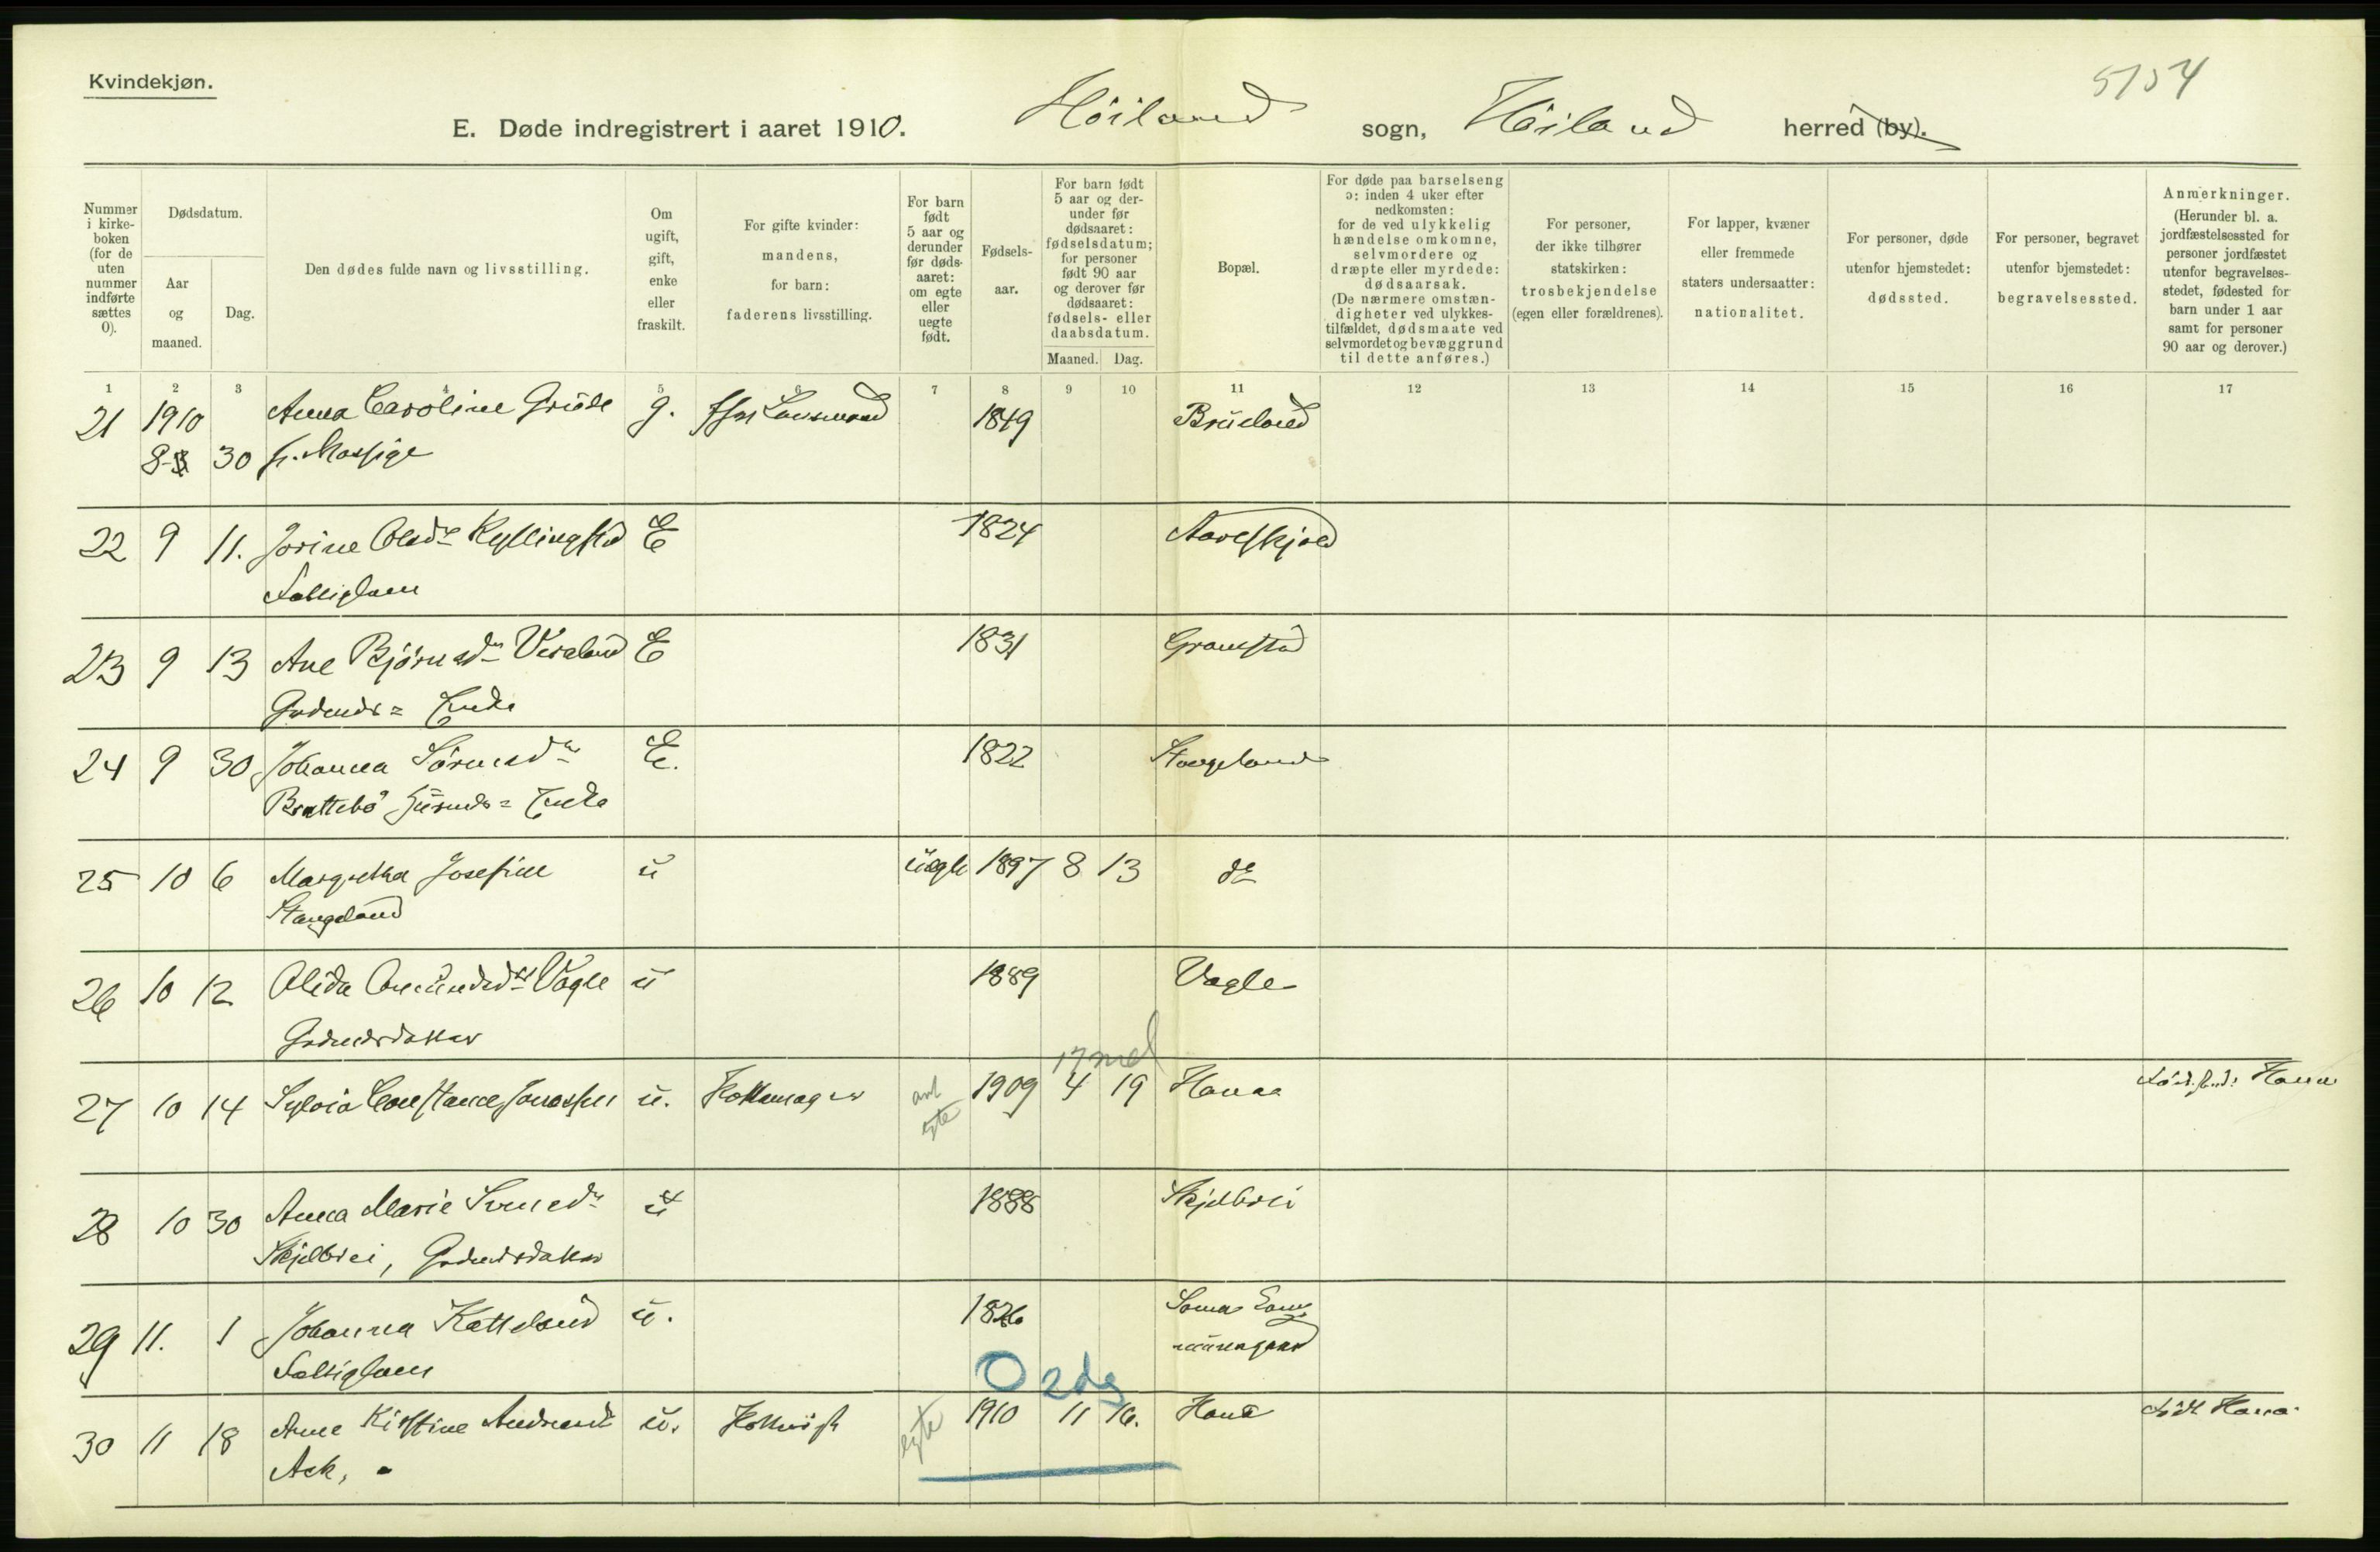 Kvindekjøn.
5154
E. Døde indregistrert i aaret 1910. Höiland sogn, Höiland herred (by).
Nummer i kirke-boken (for de uten nummer indførte sættes 0).
Dødsdatum.
Aar og maaned.
Dag.
Den dødes fulde navn og livsstilling.
Om ugift, gift, enke eller fraskilt.
For gifte kvinder: mandens, for barn: faderens livsstilling.
For barn født 5 aar og derunder før døds-aaret: om egte eller uegte født.
Fødsels-aar.
For barn født 5 aar og der-under før dødsaaret: fødselsdatum; for personer født 90 aar og derover før dødsaaret: fødsels- eller daabsdatum.
Maaned. Dag.
Bopæl.
For døde paa barselseng ɔ: inden 4 uker efter nedkomsten: for de ved ulykkelig hændelse omkomne, selvmordere og dræpte eller myrdede: dødsaarsak. (De nærmere omstæn-digheter ved ulykkes-tilfældet, dødsmaate ved selvmordet og bevæggrund til dette anføres.)
For personer, der ikke tilhører statskirken: trosbekjendelse (egen eller forældrenes).
For lapper, kvæner eller fremmede staters undersaatter: nationalitet.
For personer, døde utenfor hjemstedet: dødssted.
For personer, begravet utenfor bjemstedet: begravelsessted.
Anmerkninger. (Herunder bl. a. jordfæstelsessted for personer jordfæstet utenfor begravelses-stedet, fødested for barn under 1 aar samt for personer 90 aar og derover.)
1 2 3 4 5 6 7 8 9 10 11 12 13 14 15 16 17
21 1910 Anna Caroline Gröde g. 1849 Brüeland
8 30 f. Massige
22 9 11. Jorine Olsdr Kyllingstad E 1824 Aareskjold
Fattiglem
23 9 13 Ane Björnsdr Vereland E 1831 Gramstad
Grdmds = Enke
24 9 30 Johanna Sörensdr E. 1822 Stangeland
Brattebö Husmds = Enke
25 10 6 Margretha Josefine u uegte 1897 8 13 do
Stangeland
26 10 12 Alida Amundsdr Vagle u 1889 Vagle
Grdmdsdatter
17 md
27 10 14 Sylvia Constance Jonassen u. Pottemager egte 1909 4 19 Hanaa Födested: Hana
28 10 30 Anna Marie Svensdr u 1888 Skjelbrei
Skjelbrei, Grdmdsdatter
29 11. 1 Johanna Katteland u. 1826 Soma
Fattiglem
0 2 dg
30 11 18 Anne Kirstine u. egte 1910 11 16. Hana Födt Hana.
Ask,